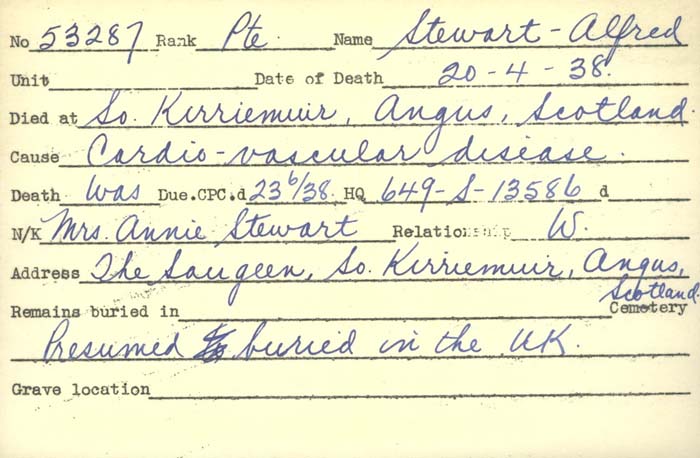 No 53287 Rank Pte Name Stewart - Alfred
Unit Date of Death 20-4-38.
Died at So. Kirriemuir, Angus, Scotland.
Cause Cardio-vascular disease.
Death Was Due.CPC.d 23 6/38 HQ 649-S-13586 d
N/K Mrs. Annie Stewart Relationship W.
Address The Saugeen, So. Kirriemuir, Angus,
Scotland.
Remains buried in Cemetery
Presumed buried in the UK.
Grave location